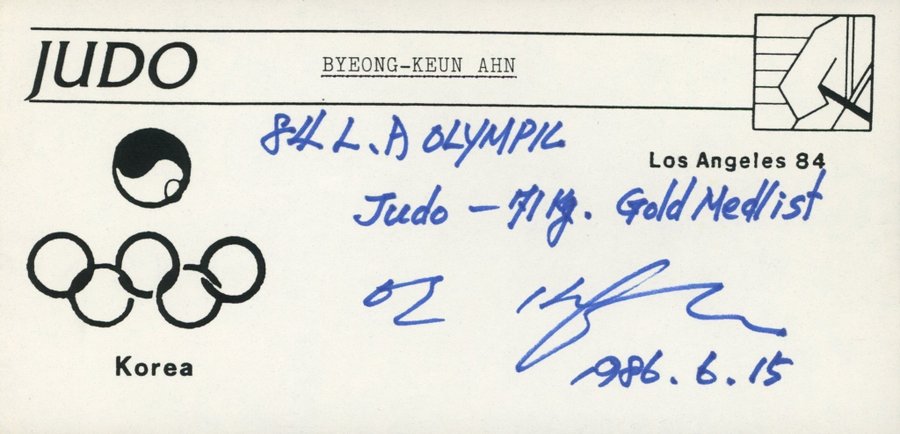 JUDO
BYEONG-KEUN AHN
84 L.A OLYMPIC
Los Angeles 84
Judo - 71 kg. Gold Medlist
안
1986.6.15
Korea